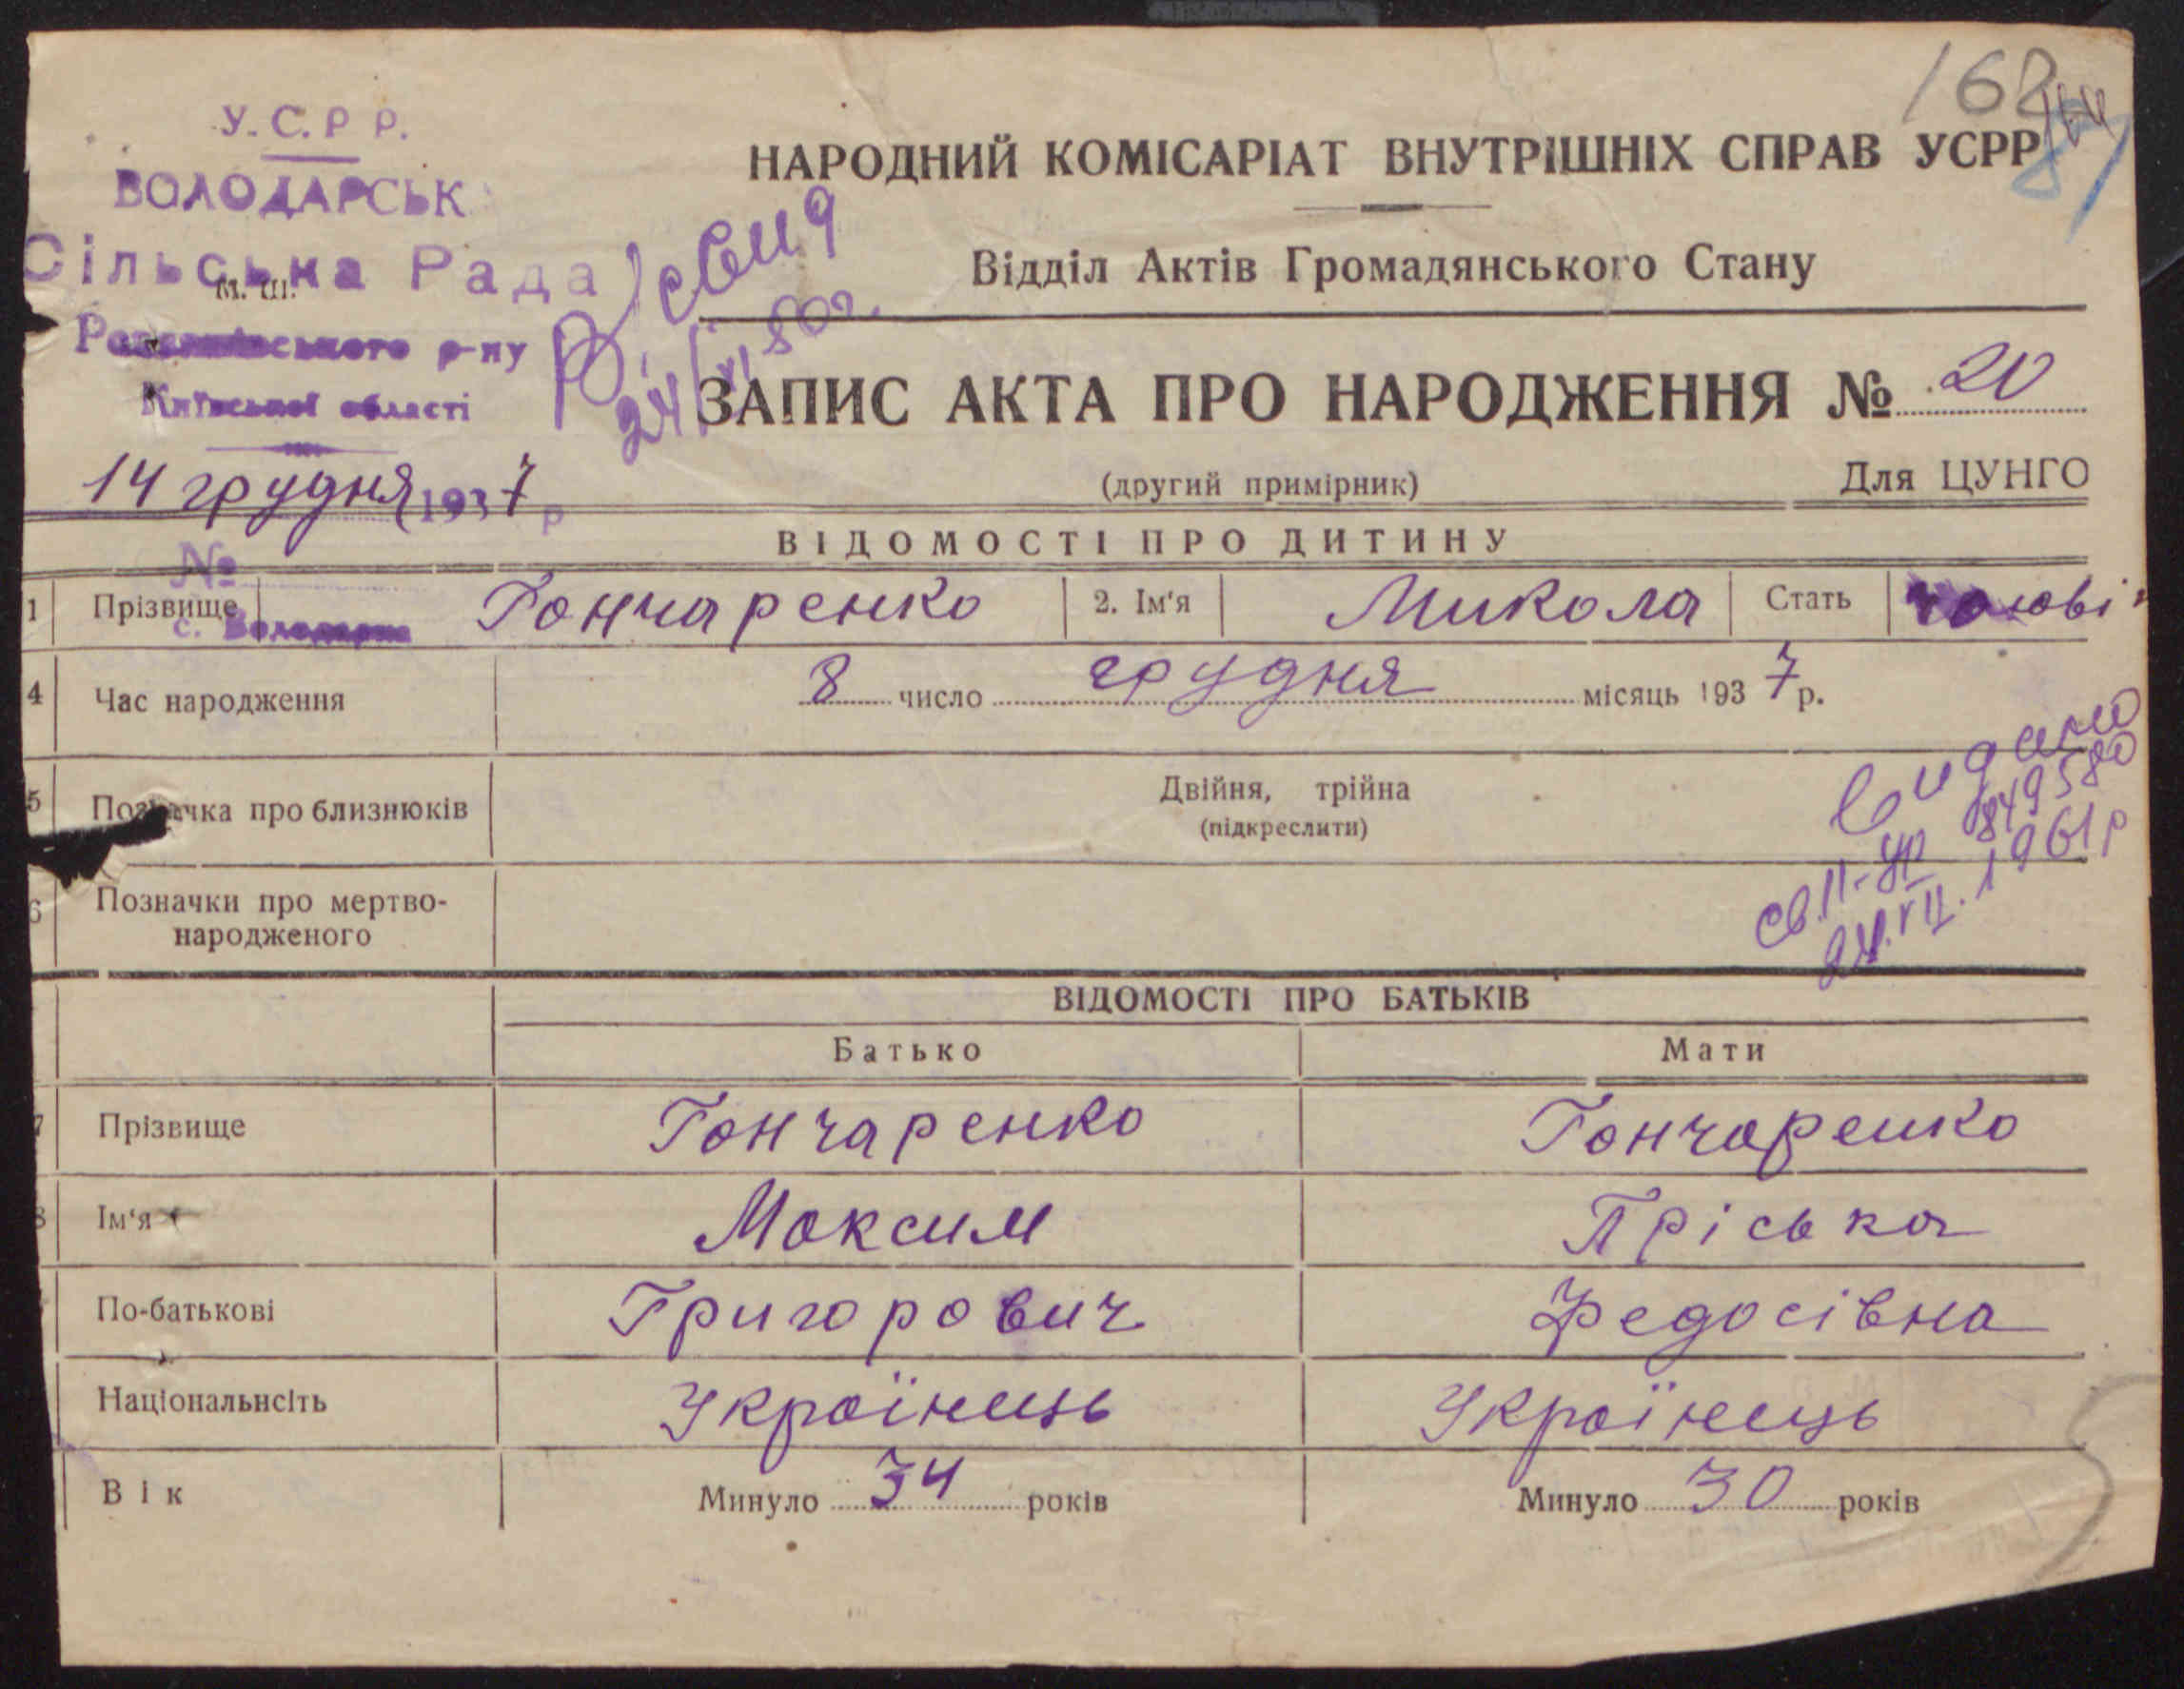 У.С.Р Р.
ВОЛОДАРСЬК
Сільська Рада
м. ш.
р-ну
Київської області
14 грудня 1937 р
№
с. Володарка
168
НАРОДНИЙ КОМІСАРІАТ ВНУТРІШНІХ СПРАВ УСРР
Відділ Актів Громадянського Стану
ЗАПИС АКТА ПРО НАРОДЖЕННЯ № 20
(другий примірник)
Для ЦУНГО
ВІДОМОСТІ ПРО ДИТИНУ
1 Прізвище Гончаренко 2. Ім'я Микола Стать чоловіч
4 Час народження 8 число грудня місяць 1937 р.
5 Позначка про близнюків Двійня, трійна
(підкреслити)
видано
св. II-УР 849580
24.VII.1961р
6 Позначки про мертво-
народженого
ВІДОМОСТІ ПРО БАТЬКІВ
Батько Мати
7 Прізвище Гончаренко Гончаренко
8 Ім'я Максим Пріська
По-батькові Григорович Федосівна
Національнсіть Українець Українець
Вік Минуло 34 років Минуло 30 років